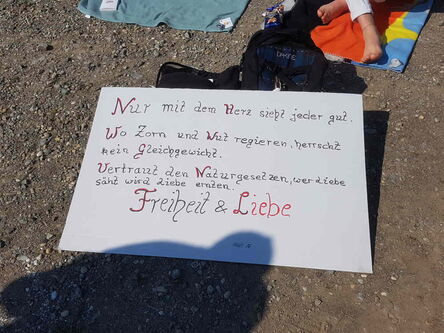 Nur mit dem Herz sieht jeder gut.
Wo Zorn und Wut regieren, herrscht
kein Gleichgewicht.
Vertraut den Naturgesetzen, wer Liebe
säht wird Liebe ernten.
Freiheit & Liebe